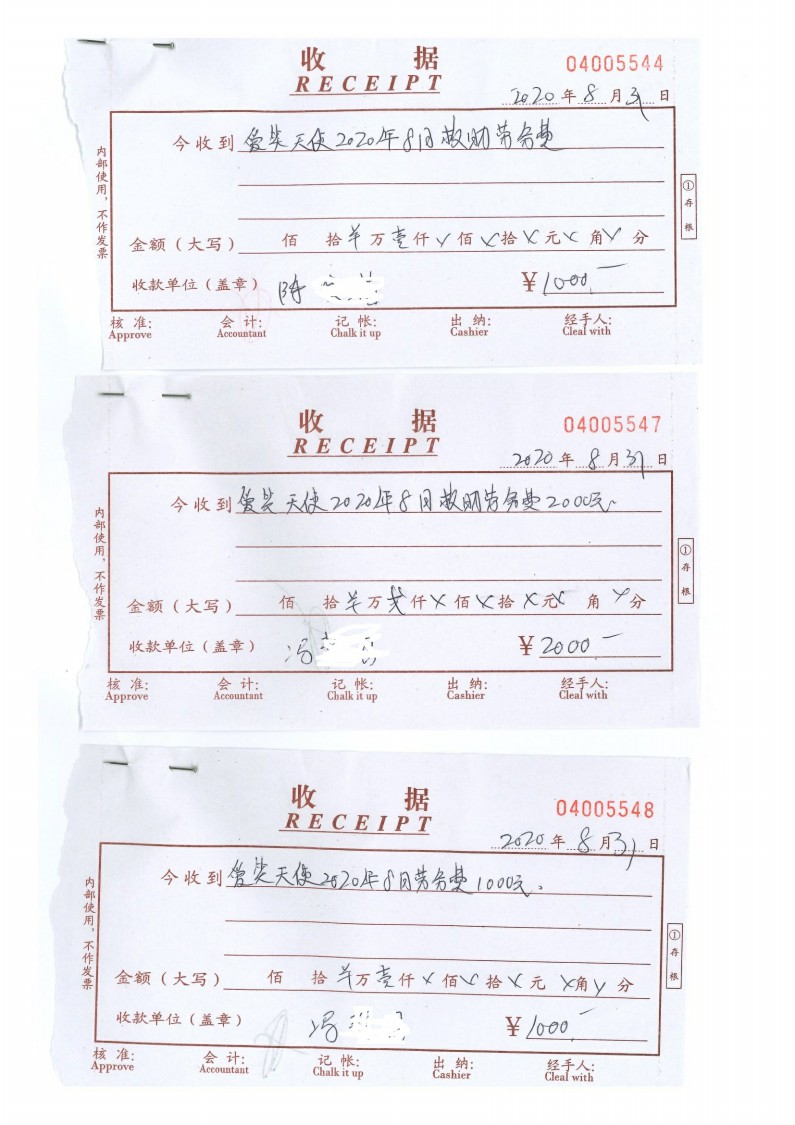 收 据
RECEIPT
04005544
2020年8月31日
今收到 爱笑天使2020年8月救助劳务费
金额（大写） 佰 拾 ￥万壹仟×佰×拾×元×角×分
收款单位（盖章） 陈
￥1000.—
核 准: 会 计: 记 帐: 出 纳: 经手人:
Approve Accountant Chalk it up Cashier Cleal with
内部使用，不作发票
①存根
收 据
RECEIPT
04005547
2020年8月31日
今收到 爱笑天使2020年8月救助劳务费2000元.
金额（大写） 佰 拾 ￥万贰仟×佰×拾×元×角×分
收款单位（盖章） 冯
￥2000.—
核 准: 会 计: 记 帐: 出 纳: 经手人:
Approve Accountant Chalk it up Cashier Cleal with
内部使用，不作发票
①存根
收 据
RECEIPT
04005548
2020年8月31日
今收到 爱笑天使2020年8月劳务费1000元.
金额（大写） 佰 拾 ￥万壹仟×佰×拾×元×角×分
收款单位（盖章） 冯
￥1000.—
核 准: 会 计: 记 帐: 出 纳: 经手人:
Approve Accountant Chalk it up Cashier Cleal with
内部使用，不作发票
①存根